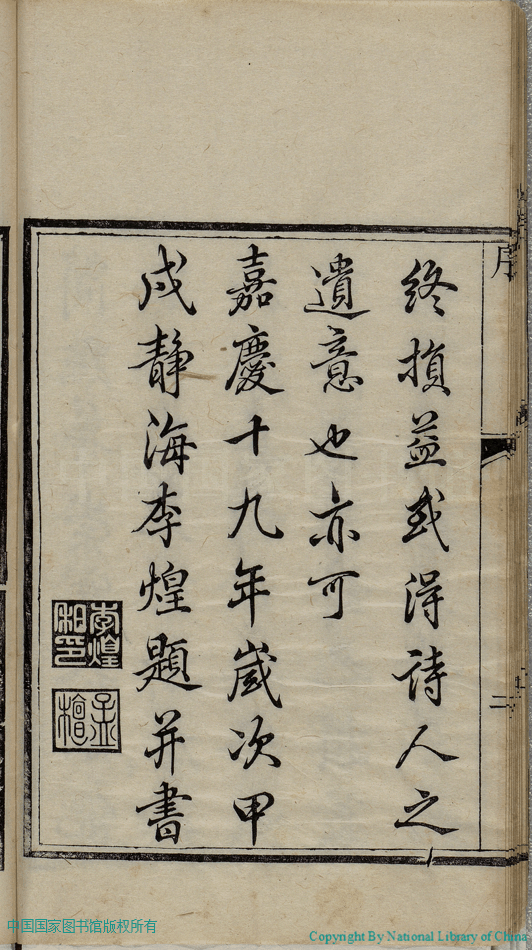 終損益或得詩人之
遺意也亦可
嘉慶十九年歲次甲
戌静海李煌題并書
序
二
中国国家图书馆版权所有
Copyright By National Library of China